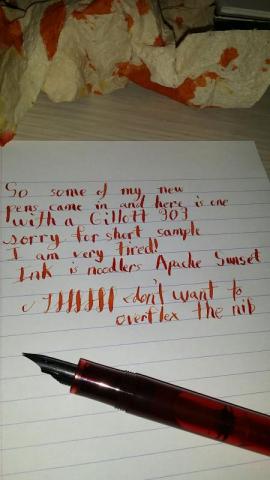 So some of my new
pens came in and here is one
with a Gillott 303
sorry for short sample
I am very tired!
Ink is noodlers Apache Sunset
don't want to
overflex the nib